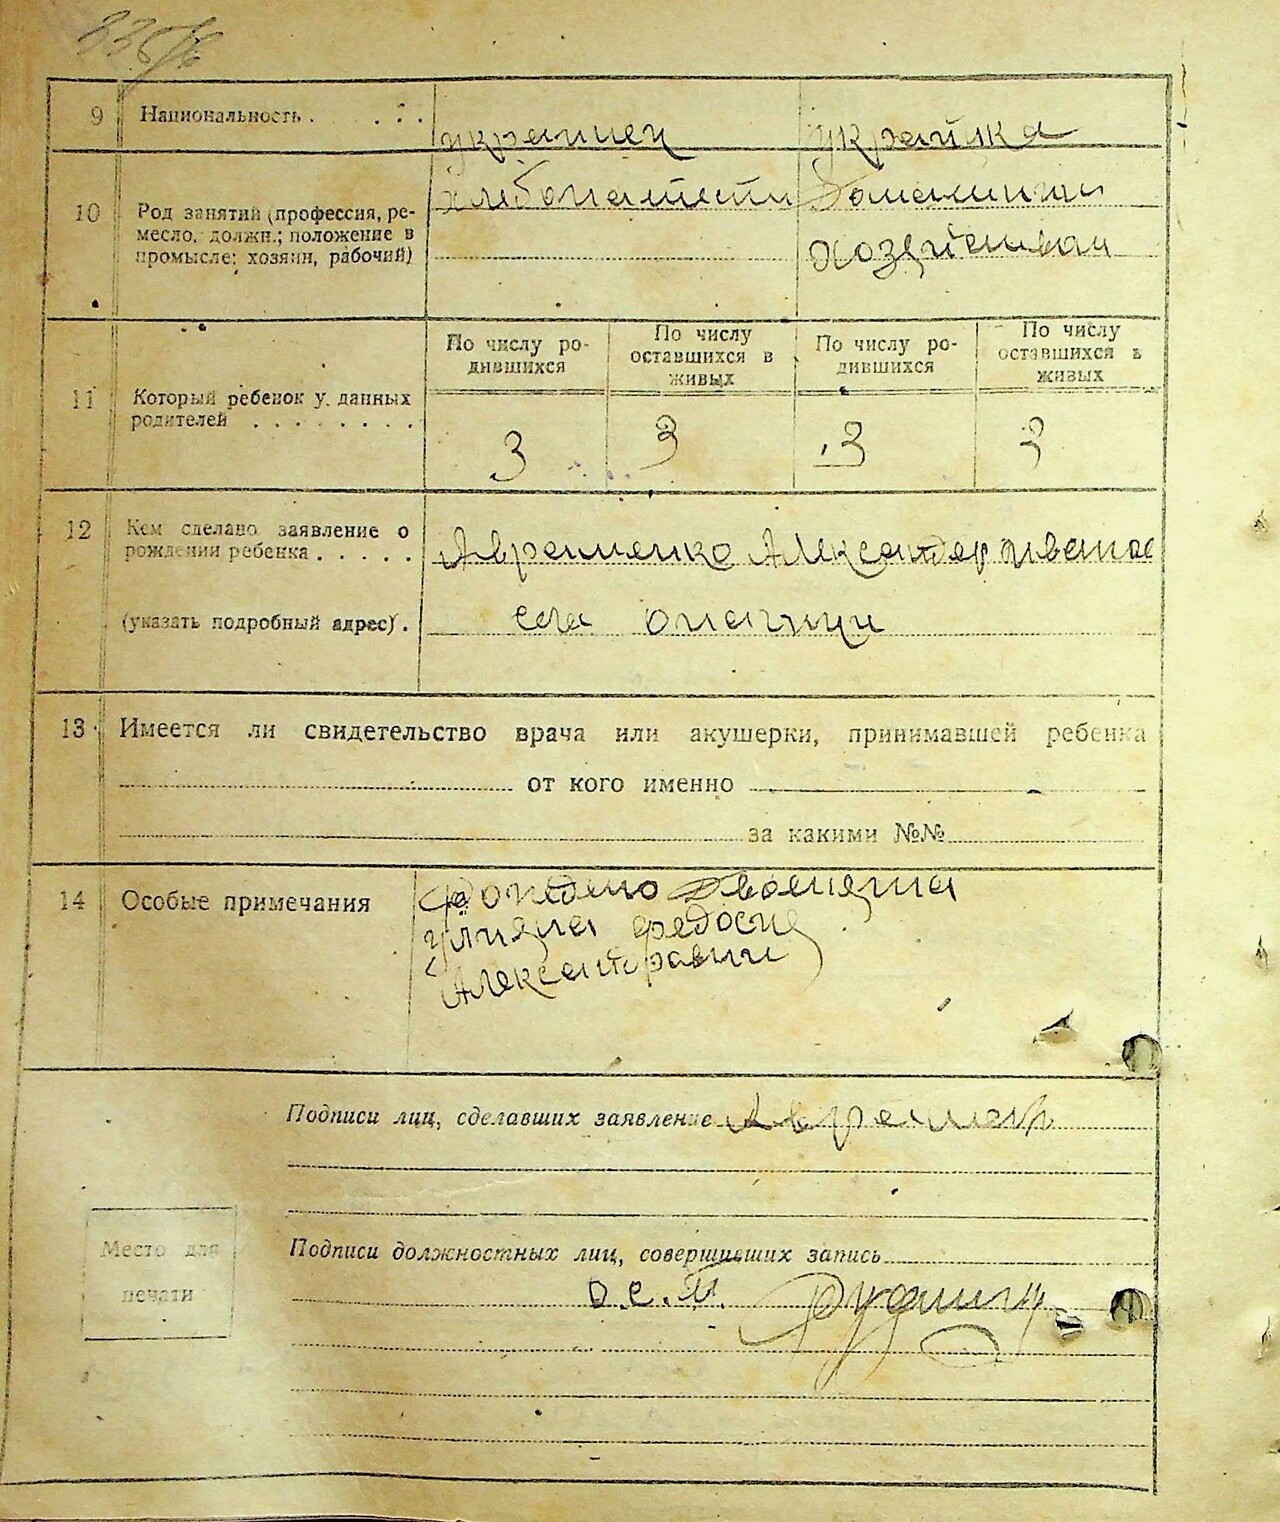 9 Национальность . . . .
украинец украинка
10 Род занятий (профессия, ре-
месло, должн.; положение в
промысле: хозяин, рабочий)
хлебопашести Домашним
хозяйством
По числу ро-
дившихся
По числу
оставшихся в
живых
По числу ро-
дившихся
По числу
оставшихся в
живых
11 Который ребенок у данных
родителей . . . . . . . .
3 3 3 3
12 Кем сделано заявление о
рождении ребенка . . . . .
Авраменко Александер Иванов
(указать подробный адрес) .
села
13 Имеется ли свидетельство врача или акушерки, принимавшей ребенка
от кого именно
за какими №№
14 Особые примечания
Александравни
Подписи лиц, сделавших заявление Авраменк
Место для
печати
Подписи должностных лиц, совершивших запись